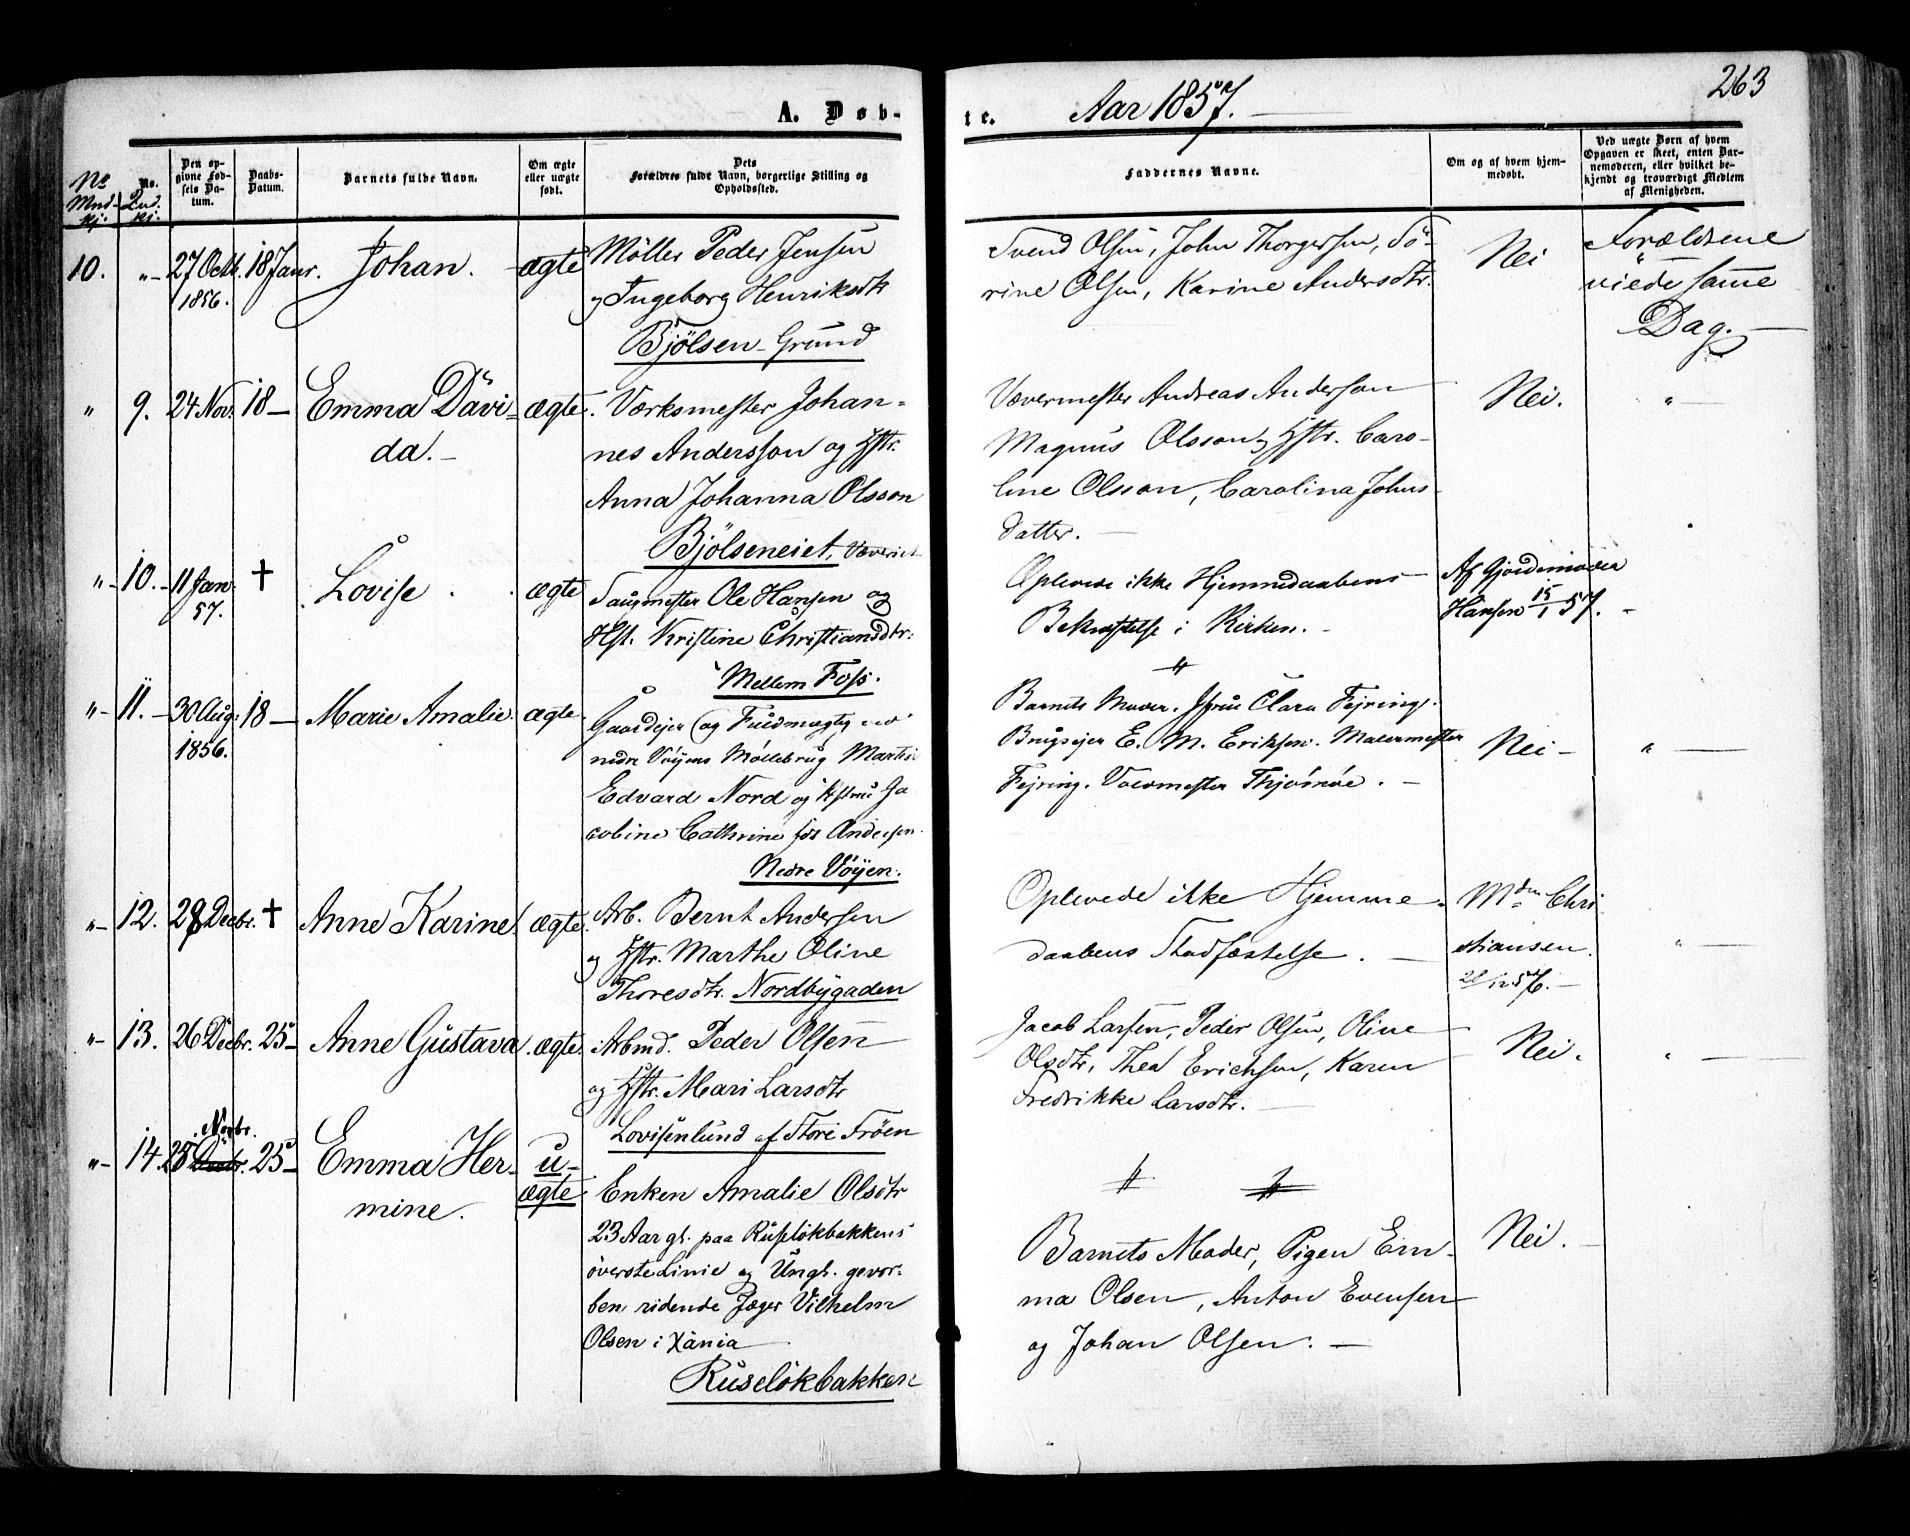 263
A. Døbte.
Aar 1857.
No Mnd-kj.
No. Qvd. kj.
Den opgivne Fødsels Datum.
Daabs-Datum.
Barnets fulde Navn.
Om ægte eller uægte født.
Dets Forældres fulde Navn, borgerlige Stilling og Opholdssted.
Faddernes Navne.
Om og af hvem hjemmedøbt.
Ved uægte Børn af hvem Opgaven er skeet, enten Barnemoderen, eller hvilket bekjendt og troværdigt Medlem af Menigheden.
10. "- 27 Octb. 1856. 18 Janr. Johan. ægte
Møller Peder Jensen
og Ingeborg Henriksdtr
Bjölsen-Grund
Svend Olsen, John Thorgersen, Sö-
rine Olsen, Karine Andersdtr.
Nei
Forældrene
viede samme
Dag.
" 9. 24 Nov. 18 - Emma Davi-
da. - ægte.
Værksmester Johan-
nes Andersson og Hstr.
Anna Johanna Olsson
Bjölseneiet, Væveriet
Vævermester Andreas Anderson
Magnus Olsson og Hstr. Caro-
line Olsson, Carolina Johns-
datter. -
Nei. " -
"- 10. 11 Jan. 57. † Lovise. ægte
Saugmester Ole Hansen og
Hst. Kristine Christiansdtr.
Mellem Foss.
Oplevede ikke Hjemmedaabens
Bekræftelse i Kirken. -
Af Gjordemoder
Hansen 15/1 57. -
"- 11. - 30 Aug. 1856. 18 - Marie Amalie. ægte
Gaardejer (og Fuldmægtig ved
nedre Vöyens Møllebrug Martin
Edvard Nord og Hstru Ja
cobine Cathrine föt Andersen.
Nedre Vöyen.
Barnets Moder. Jfru Clara Fejring.
Brugsejer E. M. Eriksen. Malermester
Fejring. Valdmester Thjömöe. -
Nei - " -
"- 12. 28 Decbr. † Anne Karine. ægte.
Arb. Bernt Andersen
og Hstr. Marthe Oline
Thoresdtr. Nordbygaden
Oplevede ikke Hjemme-
daabens Stadfæstelse. -
Mdm Chri
stiansen.
28/12 56. -
" -
"- 13. 26 Decbr. 25 - Anne Gustava. ægte.
Arbmd. Peder Olsen
og Hstr. Mari Larsdtr
Lovisenlund af Store Fröen
Jacob Larsen, Peder Olsen, Oline
Olsdtr, Thea Erichsen, Karen
Fredrikke Larsdtr. -
Nei. " -
"- 14. 25 Novbr. 25 - Emma Her-
mine. u-
ægte
Enken Amalie Olsdtr
23 Aar gl. paa Ruselökbakkens
överste Linie og Ungk. gevor-
ben ridende Jæger Vilhelm
Olsen i Xania
Ruselökbakken
Barnets Moder, Pigen Em-
ma Olsen, Anton Evensen
og Johan Olsen. -
Nei. -